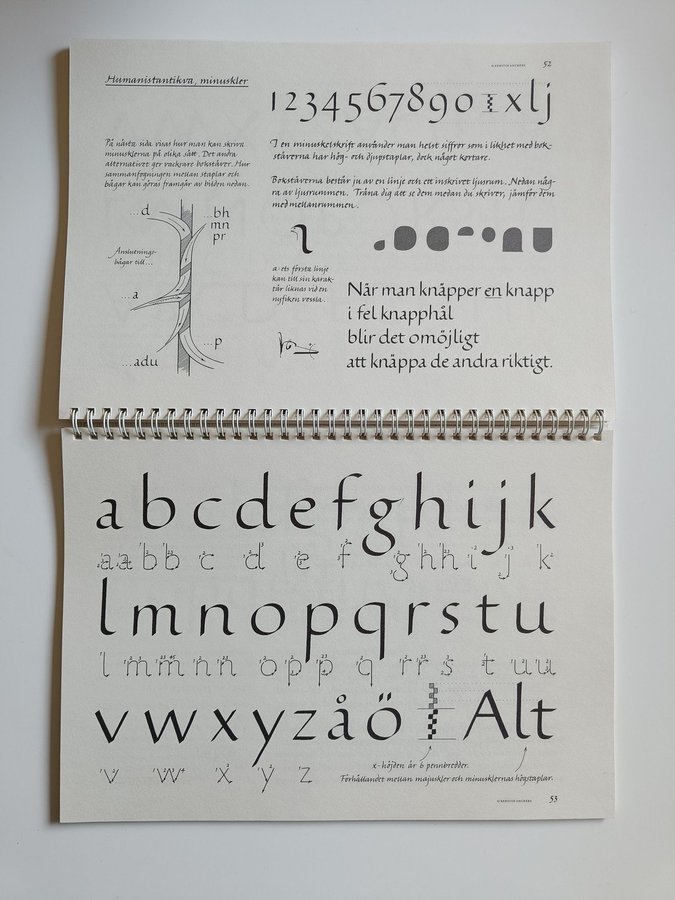 52
Humanistantikva, minuskler
1234567890 xlj
På nästa sida visas hur man kan skriva
minusklerna på olika sätt. Det andra
alternativet ger vackrare bokstäver. Hur
sammanfogningen mellan staplar och
bågar kan göras framgår av bilden nedan.
I en minuskelskrift använder man helst siffror som i likhet med bok-
stäverna har hög- och djupstaplar, dock något kortare.
Bokstäverna består ju av en linje och ett inskrivet ljusrum. Nedan någ-
ra av ljusrummen. Träna dig att se dem medan du skriver, jämför dem
med mellanrummen.
...d
...bh
mn
pr
Anslutnings-
bågar till...
...a
...adu
...p
a-ets första linje
kan till sin karak-
tär liknas vid en
nyfiken vessla.
När man knäpper en knapp
i fel knapphål
blir det omöjligt
att knäppa de andra riktigt.
abcdefghijk
a a b b c d e f g h h i j k
lmnopqrstu
l m m n n o p p q r r s t u u
vwxyzåö Alt
v w x y z
x-höjden är 6 pennbredder.
Förhållandet mellan majuskler och minusklernas högstaplar.
53